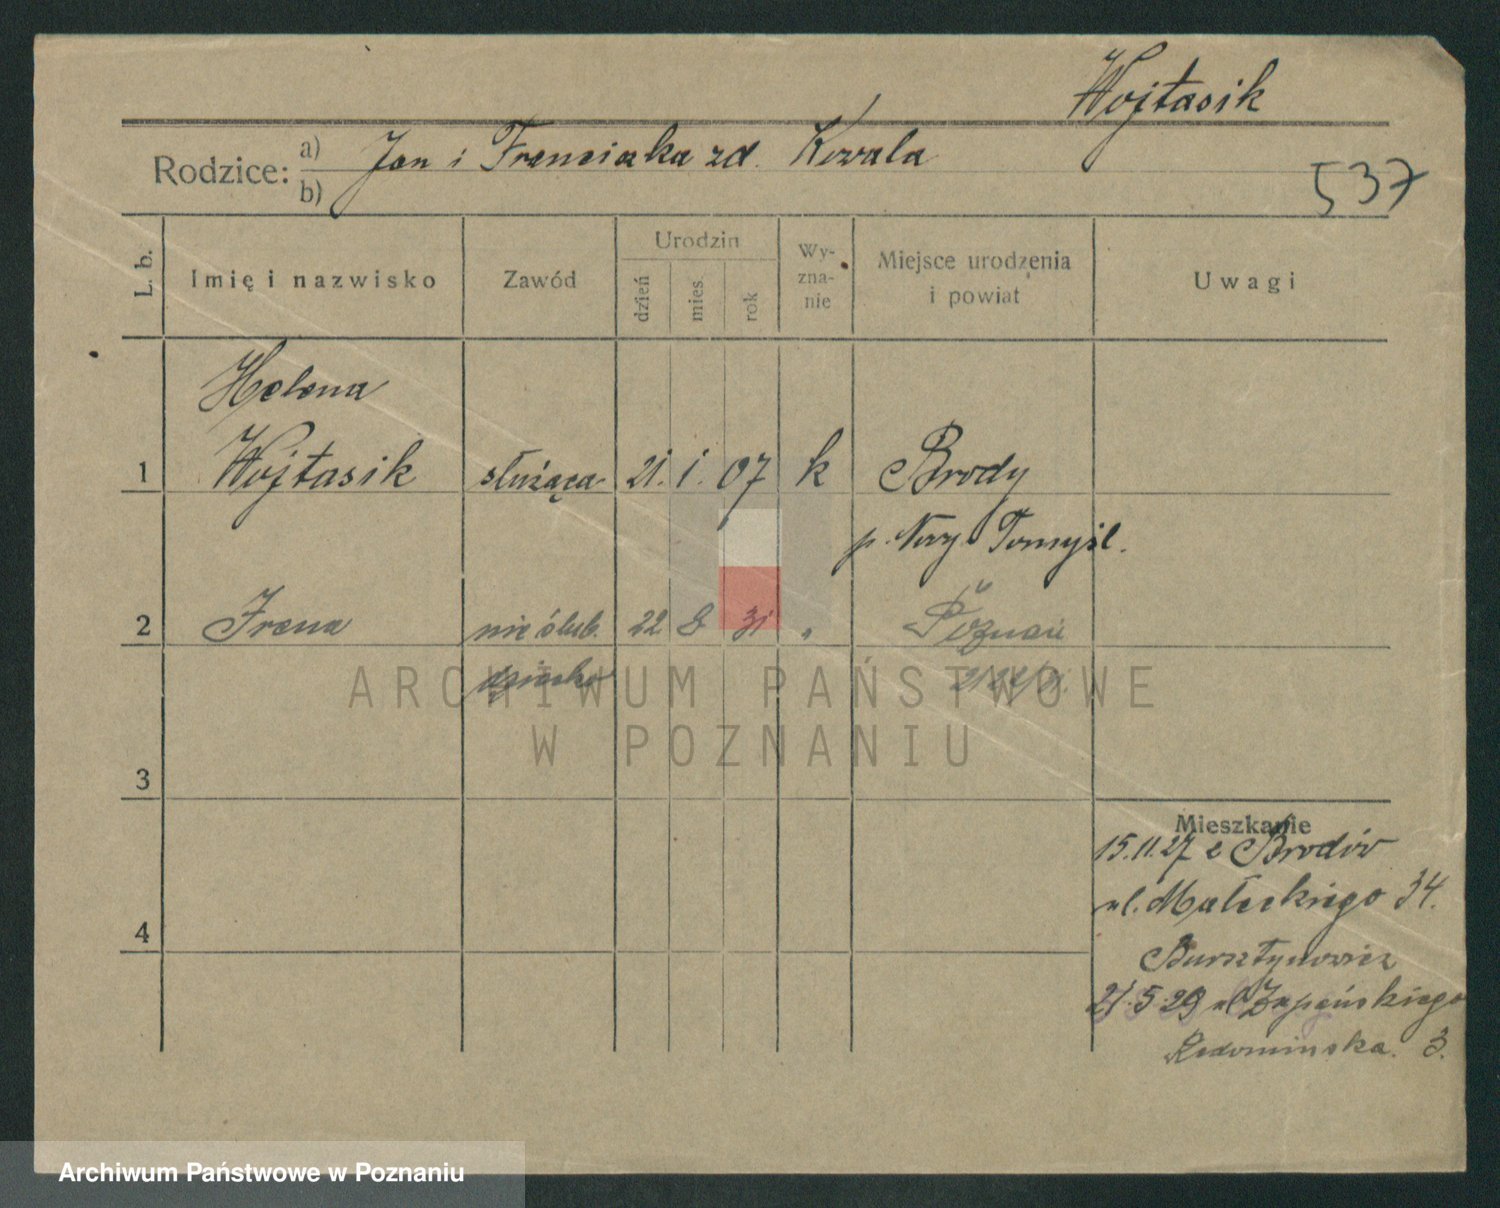 Wojtasik
Rodzice: a) Jan i Franciszka zd. Kowala
b)
537
L. b. Imię i nazwisko Zawód Urodzin dzień mies. rok Wy-zna-nie Miejsce urodzenia i powiat Uwagi
Helena
1 Wojtasik służąca 21. 1. 07 k Brody
p. Nowy Tomyśl.
2 Irena nieślub. 22 8 31 " Poznań
dziecko
ARCHIWUM PAŃSTWOWE
W POZNANIU
3
Mieszkanie
15.11.27 z Brodów
ul. Małeckiego 34.
4
Bursztynowicz
21.5.29 ul
3.
Archiwum Państwowe w Poznaniu